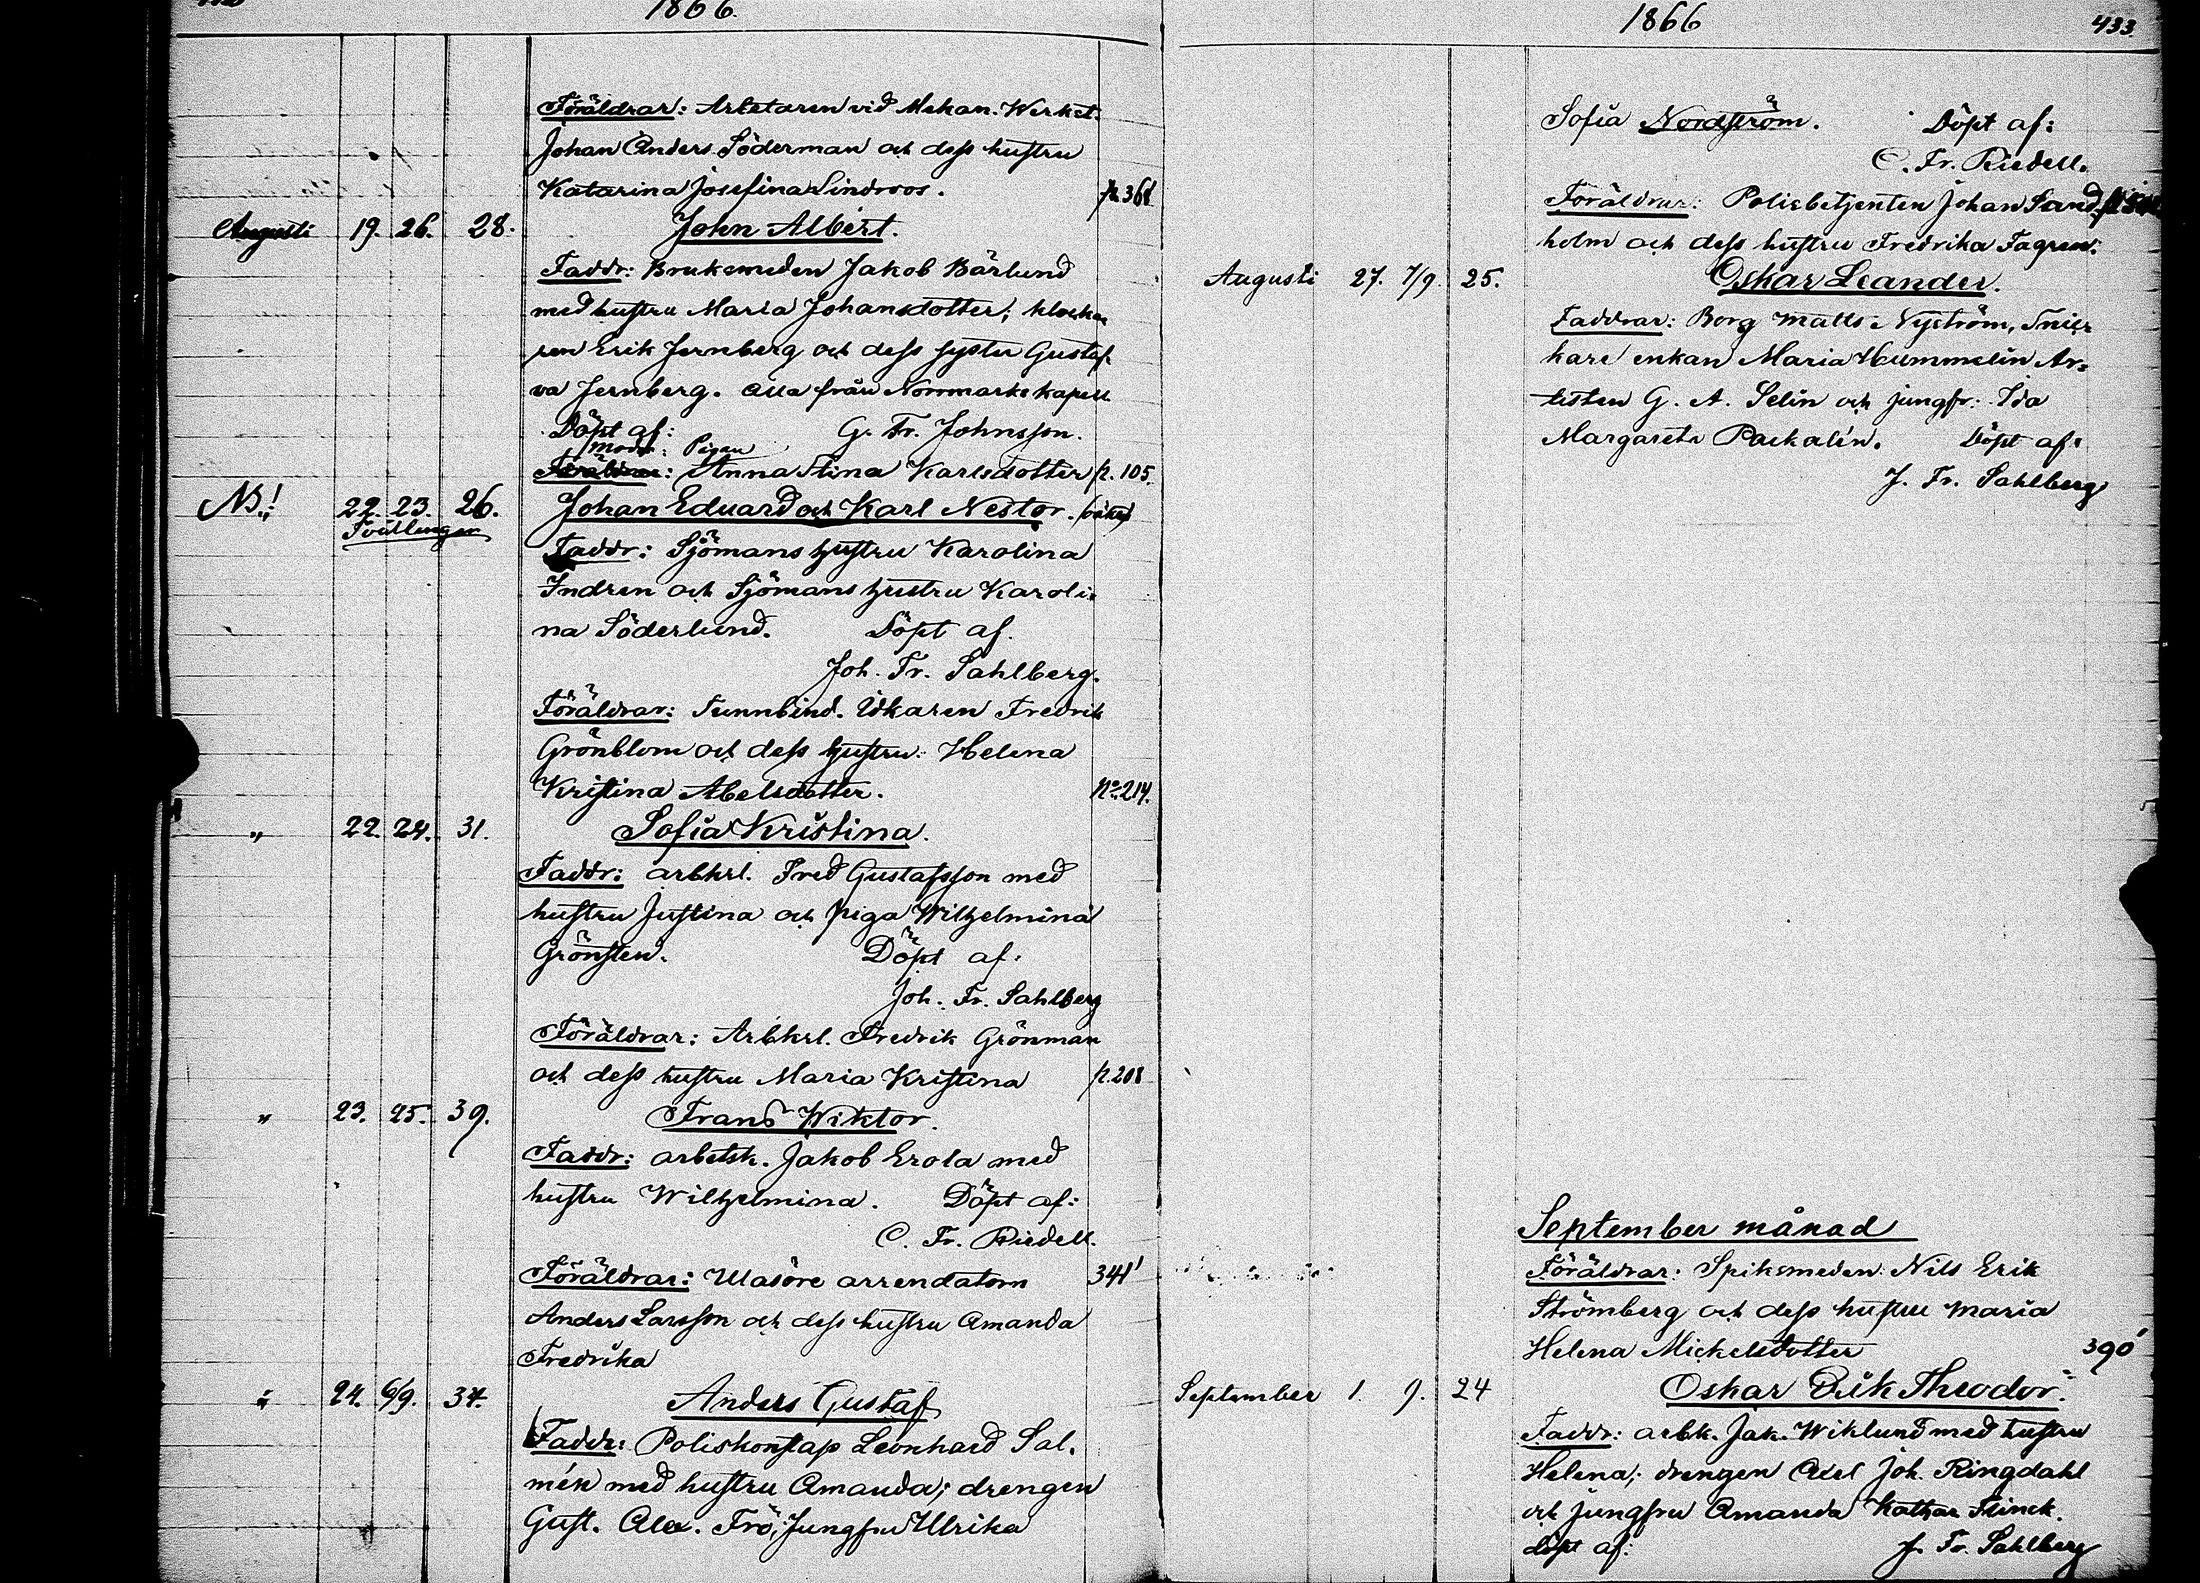 1866.
Föräldrar: Arbetaren vid Mekan. Werkst.
Johan Anders Söderman och dess hustru
Katarina Josefina Lindroos. p. 361
Augusti 19. 26. 28. John Albert.
Faddr: Bruksmeden Jakob Bärlund
med hustru Maria Johansdotter; klocka
ren Erik Jernberg och dess syster Gustaf-
va Jernberg. Alla från Norrmarks kapell
Döpt af: G. Fr. Johnsson.
Modr: Pigan
Föräldrar: Anna Stina Karlsdotter p. 105.
NB.! 22. 23. 26. Johan Eduard och Karl Nestor. (oäkta)
Tvillingar
Faddr: Sjömans hustru Karolina
Indren och Sjömans hustru Karoli-
na Söderlund. Döpt af.
Joh. Fr. Sahlberg.
Föräldrar: Tunnbind. Idkaren Fredrik
Grönblom och dess hustru: Helena
Kristina Abelsdotter. No. 214.
" 22. 24. 31. Sofia Kristina.
Faddr: arbkrl. Fred Gustafsson med
hustru Justina och piga Wilhelmina
Grönsten. Döpt af:
Joh. Fr. Sahlberg
Föräldrar: Arbkrl. Fredrik Grönman
och dess hustru Maria Kristina p. 208
" 23. 25. 39. Frans Wiktor.
Faddr: arbetsk. Jakob Erola med
hustru Wilhelmina. Döpt af:
C. Fr. Riedell.
Föräldrar: Ulasöre arrendatorn 341
Anders Larsson och dess hustru Amanda
Fredrika
" 24. 6/9. 34. Anders Gustaf
Faddr: Poliskonstap Leonhard Sal-
mén med hustru Amanda; drengen
Gust. Alex. Frö; Jungfru Ulrika
1866 433.
Sofia Nordström. Döpt af:
C. Fr. Riedell.
Föräldrar: Polisbetjenten Johan Sand-
holm och dess hustru Fredrika Fagren:
Augusti 27. 7/9. 25. Oskar Leander.
Faddrar: Borg Matts Nyström, Snic-
kare enkan Maria Hummelin Ar-
tisten G. A. Selin och jungfr: Ida
Margareta Packalén. Döpt af:
J. Fr. Sahlberg
September månad
Föräldrar: Spiksmeden Nils Erik
Strömberg och dess hustru Maria
Helena Mickelsdotter 390
September 1. 9. 24 Oskar Erik Theodor.
Faddr: arbk. Jak. Wiklund med hustru
Helena; drengen Axel Joh. Ringdahl
och jungfru Amanda Kathar Flinck.
döpt af: J. Fr. Sahlberg